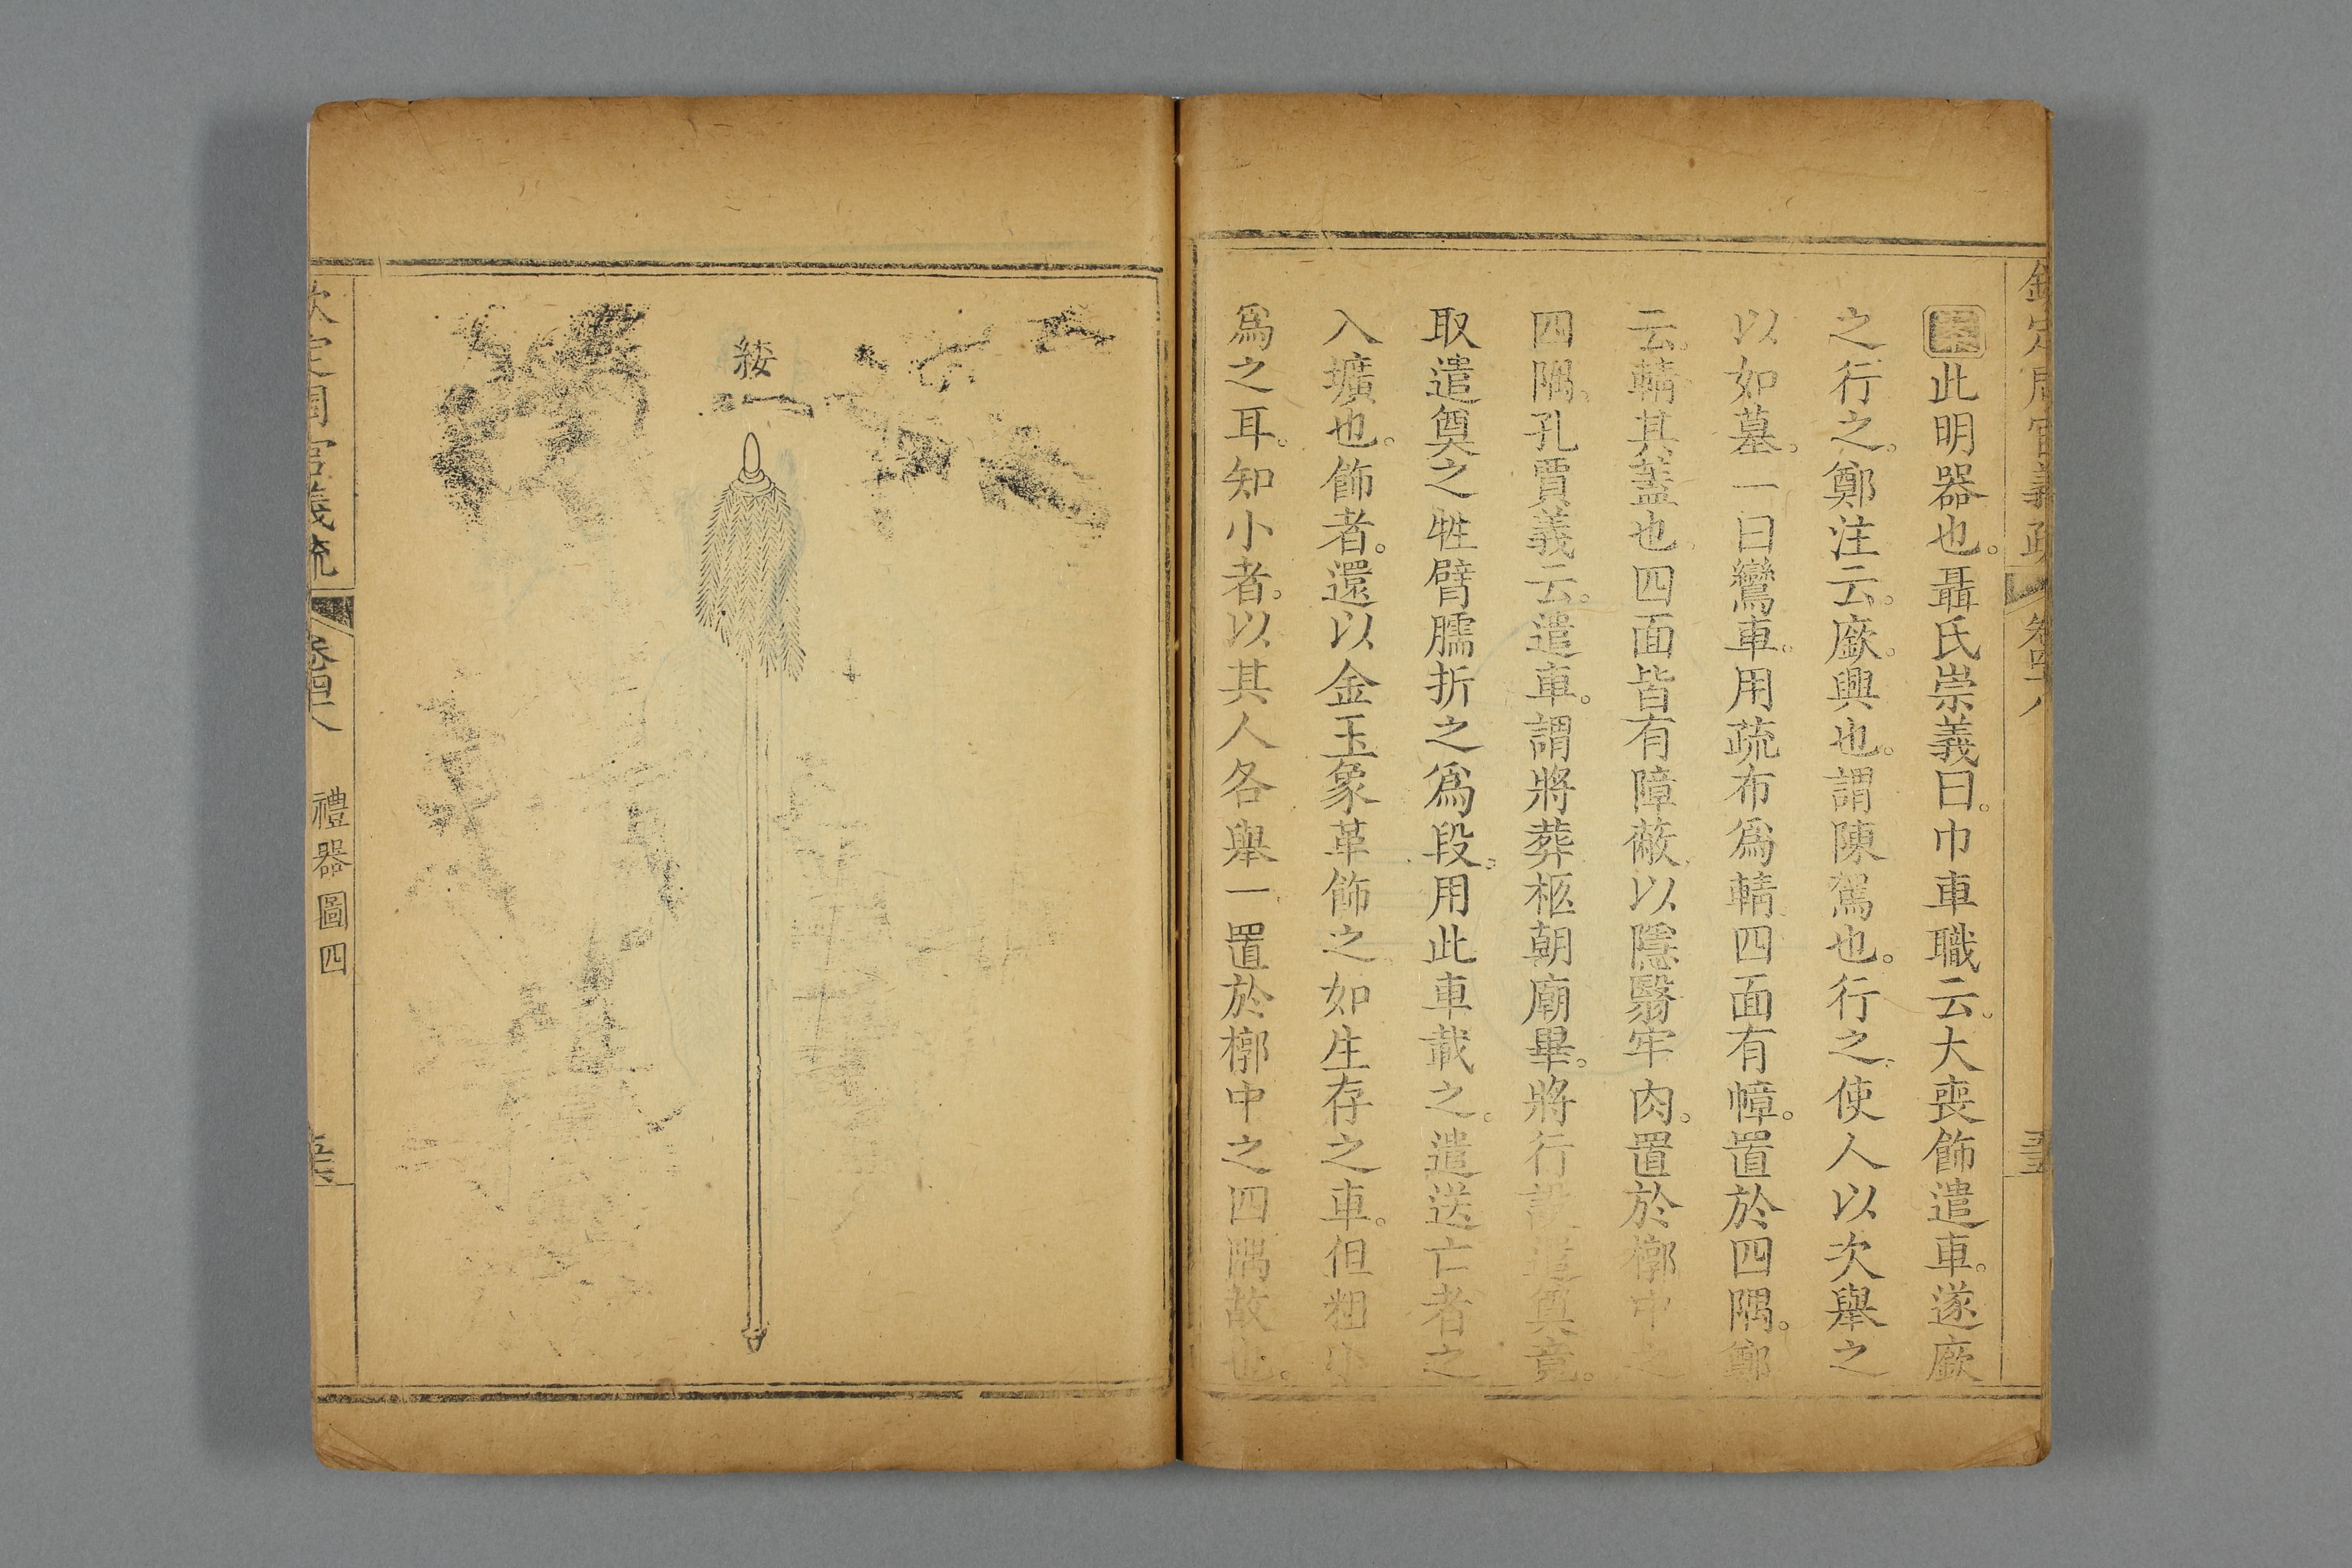 欽定周官義疏 卷四十八
此明器也。聶氏崇義曰。巾車職云。大喪飾遣車。遂廞
之行之。鄭注云。廞。興也。謂陳駕也。行之。使人以次舉之
以如墓。一曰鸞車。用疏布爲輤四面有幛。置於四隅。鄭
云。輤其蓋也。四面皆有障蔽。以隱翳牢肉。置於槨中之
四隅。孔賈義云。遣車。謂將葬柩朝廟畢。將行設遣奠竟。
取遣奠之牲臂臑折之爲段。用此車載之。遣送亡者之
入壙也。飾者。還以金玉象革飾之如生存之車。但粗小
爲之耳。知小者。以其人各舉一置於槨中之四隅故也。
綏
欽定周官義疏 卷四十八 禮器圖四